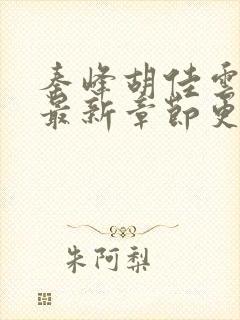 秦峰胡佳雲
最新章節更
朱阿梨